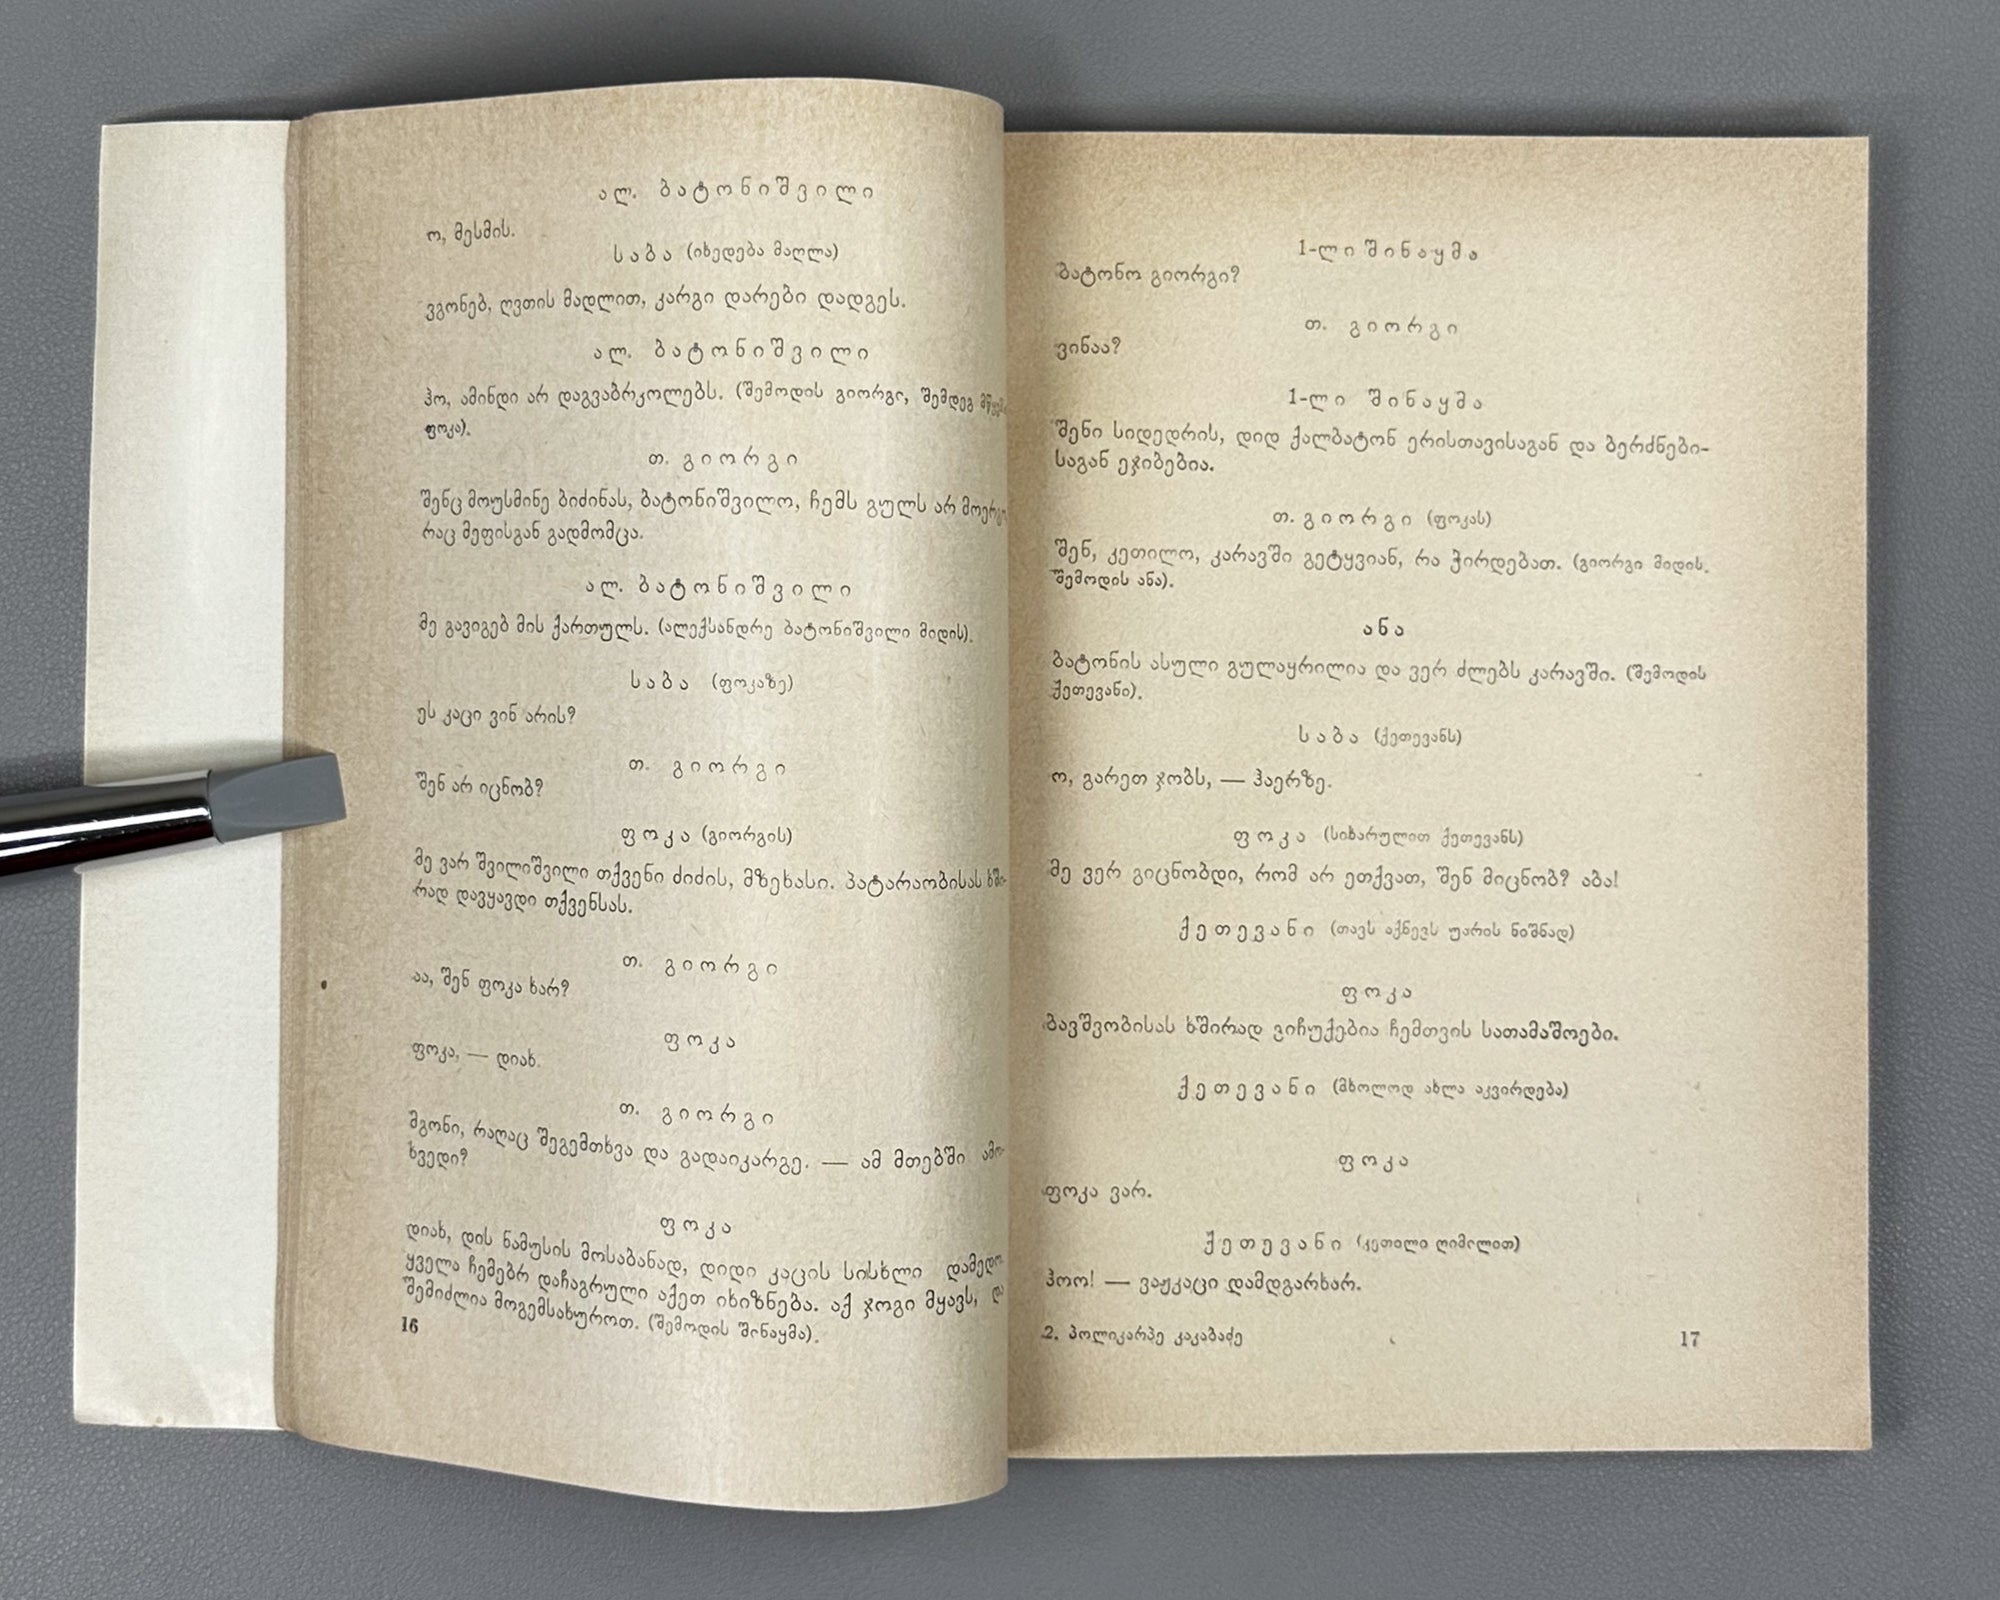 ალ. ბატონიშვილი
ო, მესმის.
საბა (იხედება მაღლა)
ვგონებ, ღვთის მადლით, კარგი დარები დადგეს.
ალ. ბატონიშვილი
ჰო, ამინდი არ დაგვაბრკოლებს. (შემოდის გიორგი, შემდეგ
ფოკა).
თ. გიორგი
შენც მოუსმინე ბიძინას, ბატონიშვილო, ჩემს გულს არ
რაც მეფისგან გადმომცა.
ალ. ბატონიშვილი
მე გავიგებ მის ქართულს. (ალექსანდრე ბატონიშვილი მიდის).
საბა (ფოკაზე)
ეს კაცი ვინ არის?
თ. გიორგი
შენ არ იცნობ?
ფოკა (გიორგის)
მე ვარ შვილიშვილი თქვენი ძიძის, მზეხასი. პატარაობისას ხში-
რად დავყავდი თქვენსას.
თ. გიორგი
აა, შენ ფოკა ხარ?
ფოკა
ფოკა, — დიახ.
თ. გიორგი
მგონი, რაღაც შეგემთხვა და გადაიკარგე. — ამ მთებში ამო-
ხვედი?
ფოკა
დიახ, დის ნამუსის მოსაბანად, დიდი კაცის სისხლი
ყველა ჩემებრ დაჩაგრული აქეთ იხიზნება. აქ ჯოგი მყავს, და
შემიძლია მოგემსახუროთ. (შემოდის შინაყმა).
16
1-ლი შინაყმა
ბატონო გიორგი?
თ. გიორგი
ვინაა?
1-ლი შინაყმა
შენი სიდედრის, დიდ ქალბატონ ერისთავისაგან და ბერძნები-
საგან ეჯიბებია.
თ. გიორგი (ფოკას)
შენ, კეთილო, კარავში გეტყვიან, რა ჭირდებათ. (გიორგი მიდის.
შემოდის ანა).
ანა
ბატონის ასული გულაყრილია და ვერ ძლებს კარავში. (შემოდის
ქეთევანი).
საბა (ქეთევანს)
ო, გარეთ ჯობს, — ჰაერზე.
ფოკა (სიხარულით ქეთევანს)
მე ვერ გიცნობდი, რომ არ ეთქვათ, შენ მიცნობ? აბა!
ქეთევანი (თავს აქნევს უარის ნიშნად)
ფოკა
ბავშვობისას ხშირად გიჩუქებია ჩემთვის სათამაშოები.
ქეთევანი (მხოლოდ ახლა აკვირდება)
ფოკა
ფოკა ვარ.
ქეთევანი (კეთილი ღიმილით)
ჰოო! — ვაჟკაცი დამდგარხარ.
2. პოლიკარპე კაკაბაძე
17